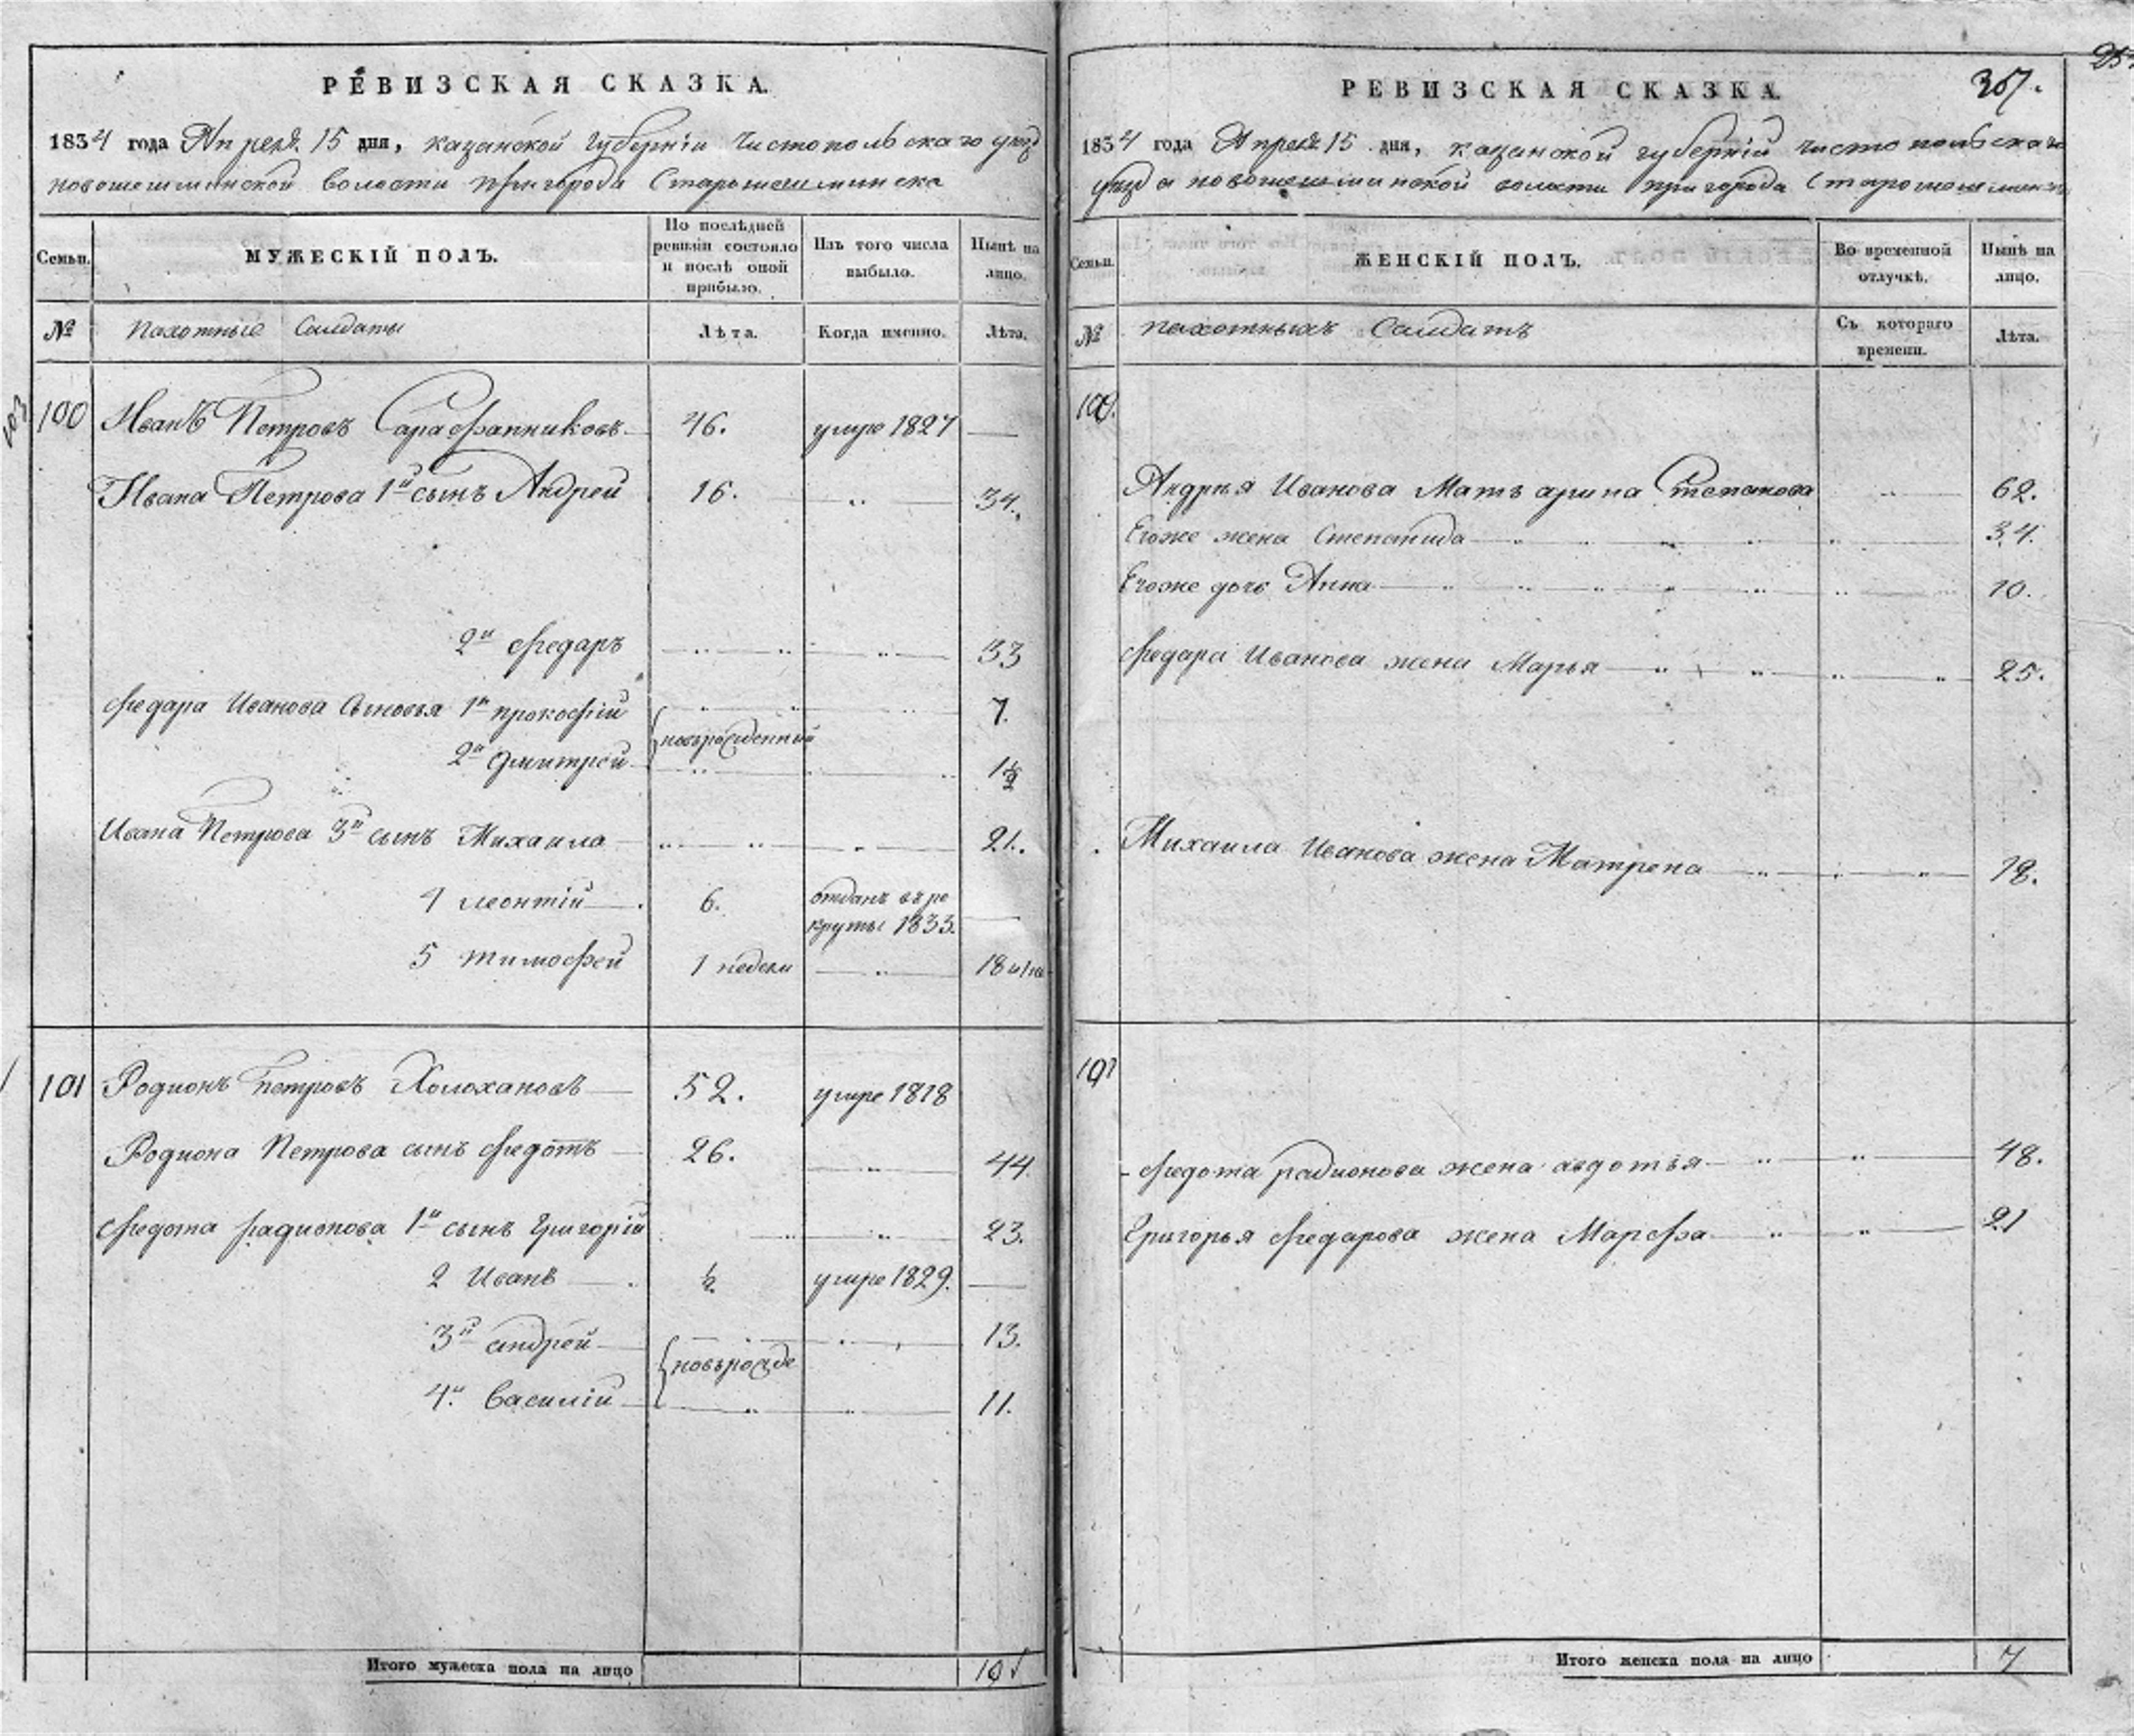 РЕВИЗСКАЯ СКАЗКА.
1834 года Апреля 15 дня, казанской губернiи Чистопольскаго уезд
новошешминской волости пригорода Старошешминска
Семьи.
МУЖЕСКІЙ ПОЛЪ.
По послѣдней ревизіи состояло и послѣ оной прибыло.
Изъ того числа выбыло.
Нынѣ на лицо.
№ Пахотные Солдаты
Лѣта. Когда именно. Лѣта.
103
100 Иванъ Петровъ Сарафанниковъ 46. умре 1827
Ивана Петрова 1й сынъ Андрей 16. 34.
2й Федаръ 33
Федара Иванова Сыновья 1й прокофiй 7.
новърожденный
2й Дмитрей 1½
Ивана Петрова 3й сынъ Михаила 21.
4 леонтiй 6. отданъ въ ре
круты 1833.
5 тимофей 1 недели 18
101 Родионъ петровъ Холохановъ 52. умре 1818
Родиона Петрова сынъ Федотъ 26. 44
Федота радионова 1й сынъ Григорiй 23.
2 Иванъ ½. умре 1829.
3й андрей 13.
новърожде
4й Василiй 11.
Итого мужеска пола на лицо 10
РЕВИЗСКАЯ СКАЗКА.
367.
1834 года Апреля 15 дня, казанской губернiй чистопольскаго
уезда новошешминской волости пригорода Старошешминск
Семьи.
ЖЕНСКІЙ ПОЛЪ.
Во временной отлучкѣ.
Нынѣ на лицо.
№ пахотныхъ Солдатъ
Съ котораго времени. Лѣта.
100.
Андрея Иванова Мать арина Степанова 62.
Егоже жена Степанида 34.
Егоже дочь Анна 10.
Федара Иванова жена Марья 25.
Михаила Иванова жена Матрена 18.
101
Федота радионова жена авдотья 48.
Григорья Федарова жена Марфа 21
Итого женска пола на лицо 7